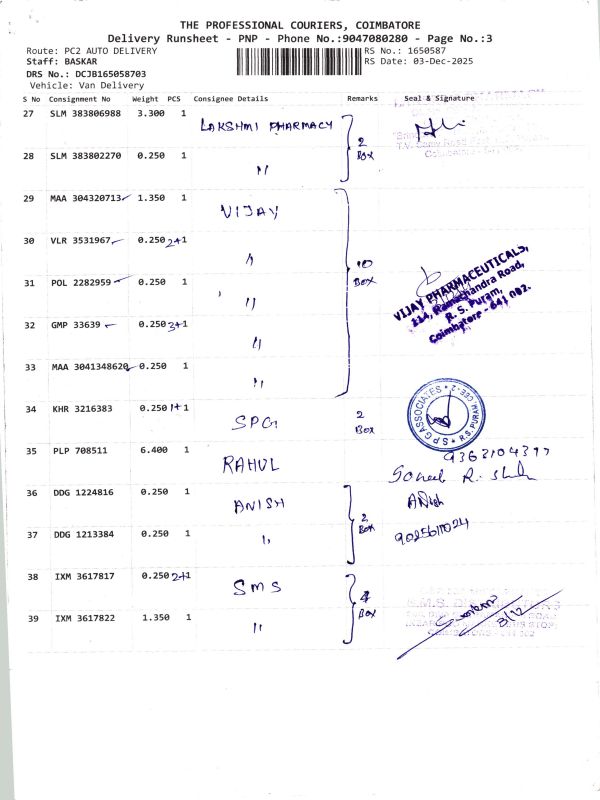 THE PROFESSIONAL COURIERS, COIMBATORE
Delivery Runsheet - PNP - Phone No.:9047080280 - Page No.:3
Route: PC2 AUTO DELIVERY RS No.: 1650587
Staff: BASKAR RS Date: 03-Dec-2025
DRS No.: DCJB165058703
Vehicle: Van Delivery
S No Consignment No Weight PCS Consignee Details Remarks Seal & Signature
27 SLM 383806988 3.300 1 LAKSHMI PHARMACY
2 BOX
28 SLM 383802270 0.250 1 "
29 MAA 304320713 1.350 1 VIJAY
30 VLR 3531967 0.250 2+1 "
10 Box
31 POL 2282959 0.250 1 "
VIJAY PHARMACEUTICALS,
114, Ramachandra Road,
R. S. Puram,
Coimbatore - 641 002.
32 GMP 33639 0.250 3+1 "
33 MAA 3041348620 0.250 1 "
34 KHR 3216383 0.250 1+1 SPG 2 Box
SPG ASSOCIATES R.S. PURAM
35 PLP 708511 6.400 1 RAHUL
36 DDG 1224816 0.250 1 ANISH
2 Box
37 DDG 1213384 0.250 1 "
38 IXM 3617817 0.250 2+1 SMS
4 Box
39 IXM 3617822 1.350 1 "
3/12